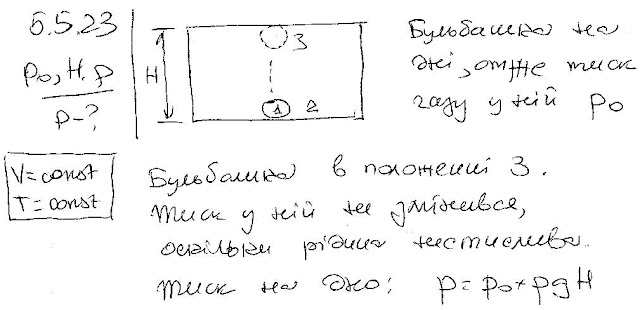 5.5.23
P₀, H, ρ
p-?
H
3
1 2
Бульбашка на
дні, отже тиск
газу у ній P₀
V=const
T=const
Бульбашка в положенні 3.
Тиск у ній не змінився,
оскільки рідина нестислива.
Тиск на дно: p = p₀ + ρgH